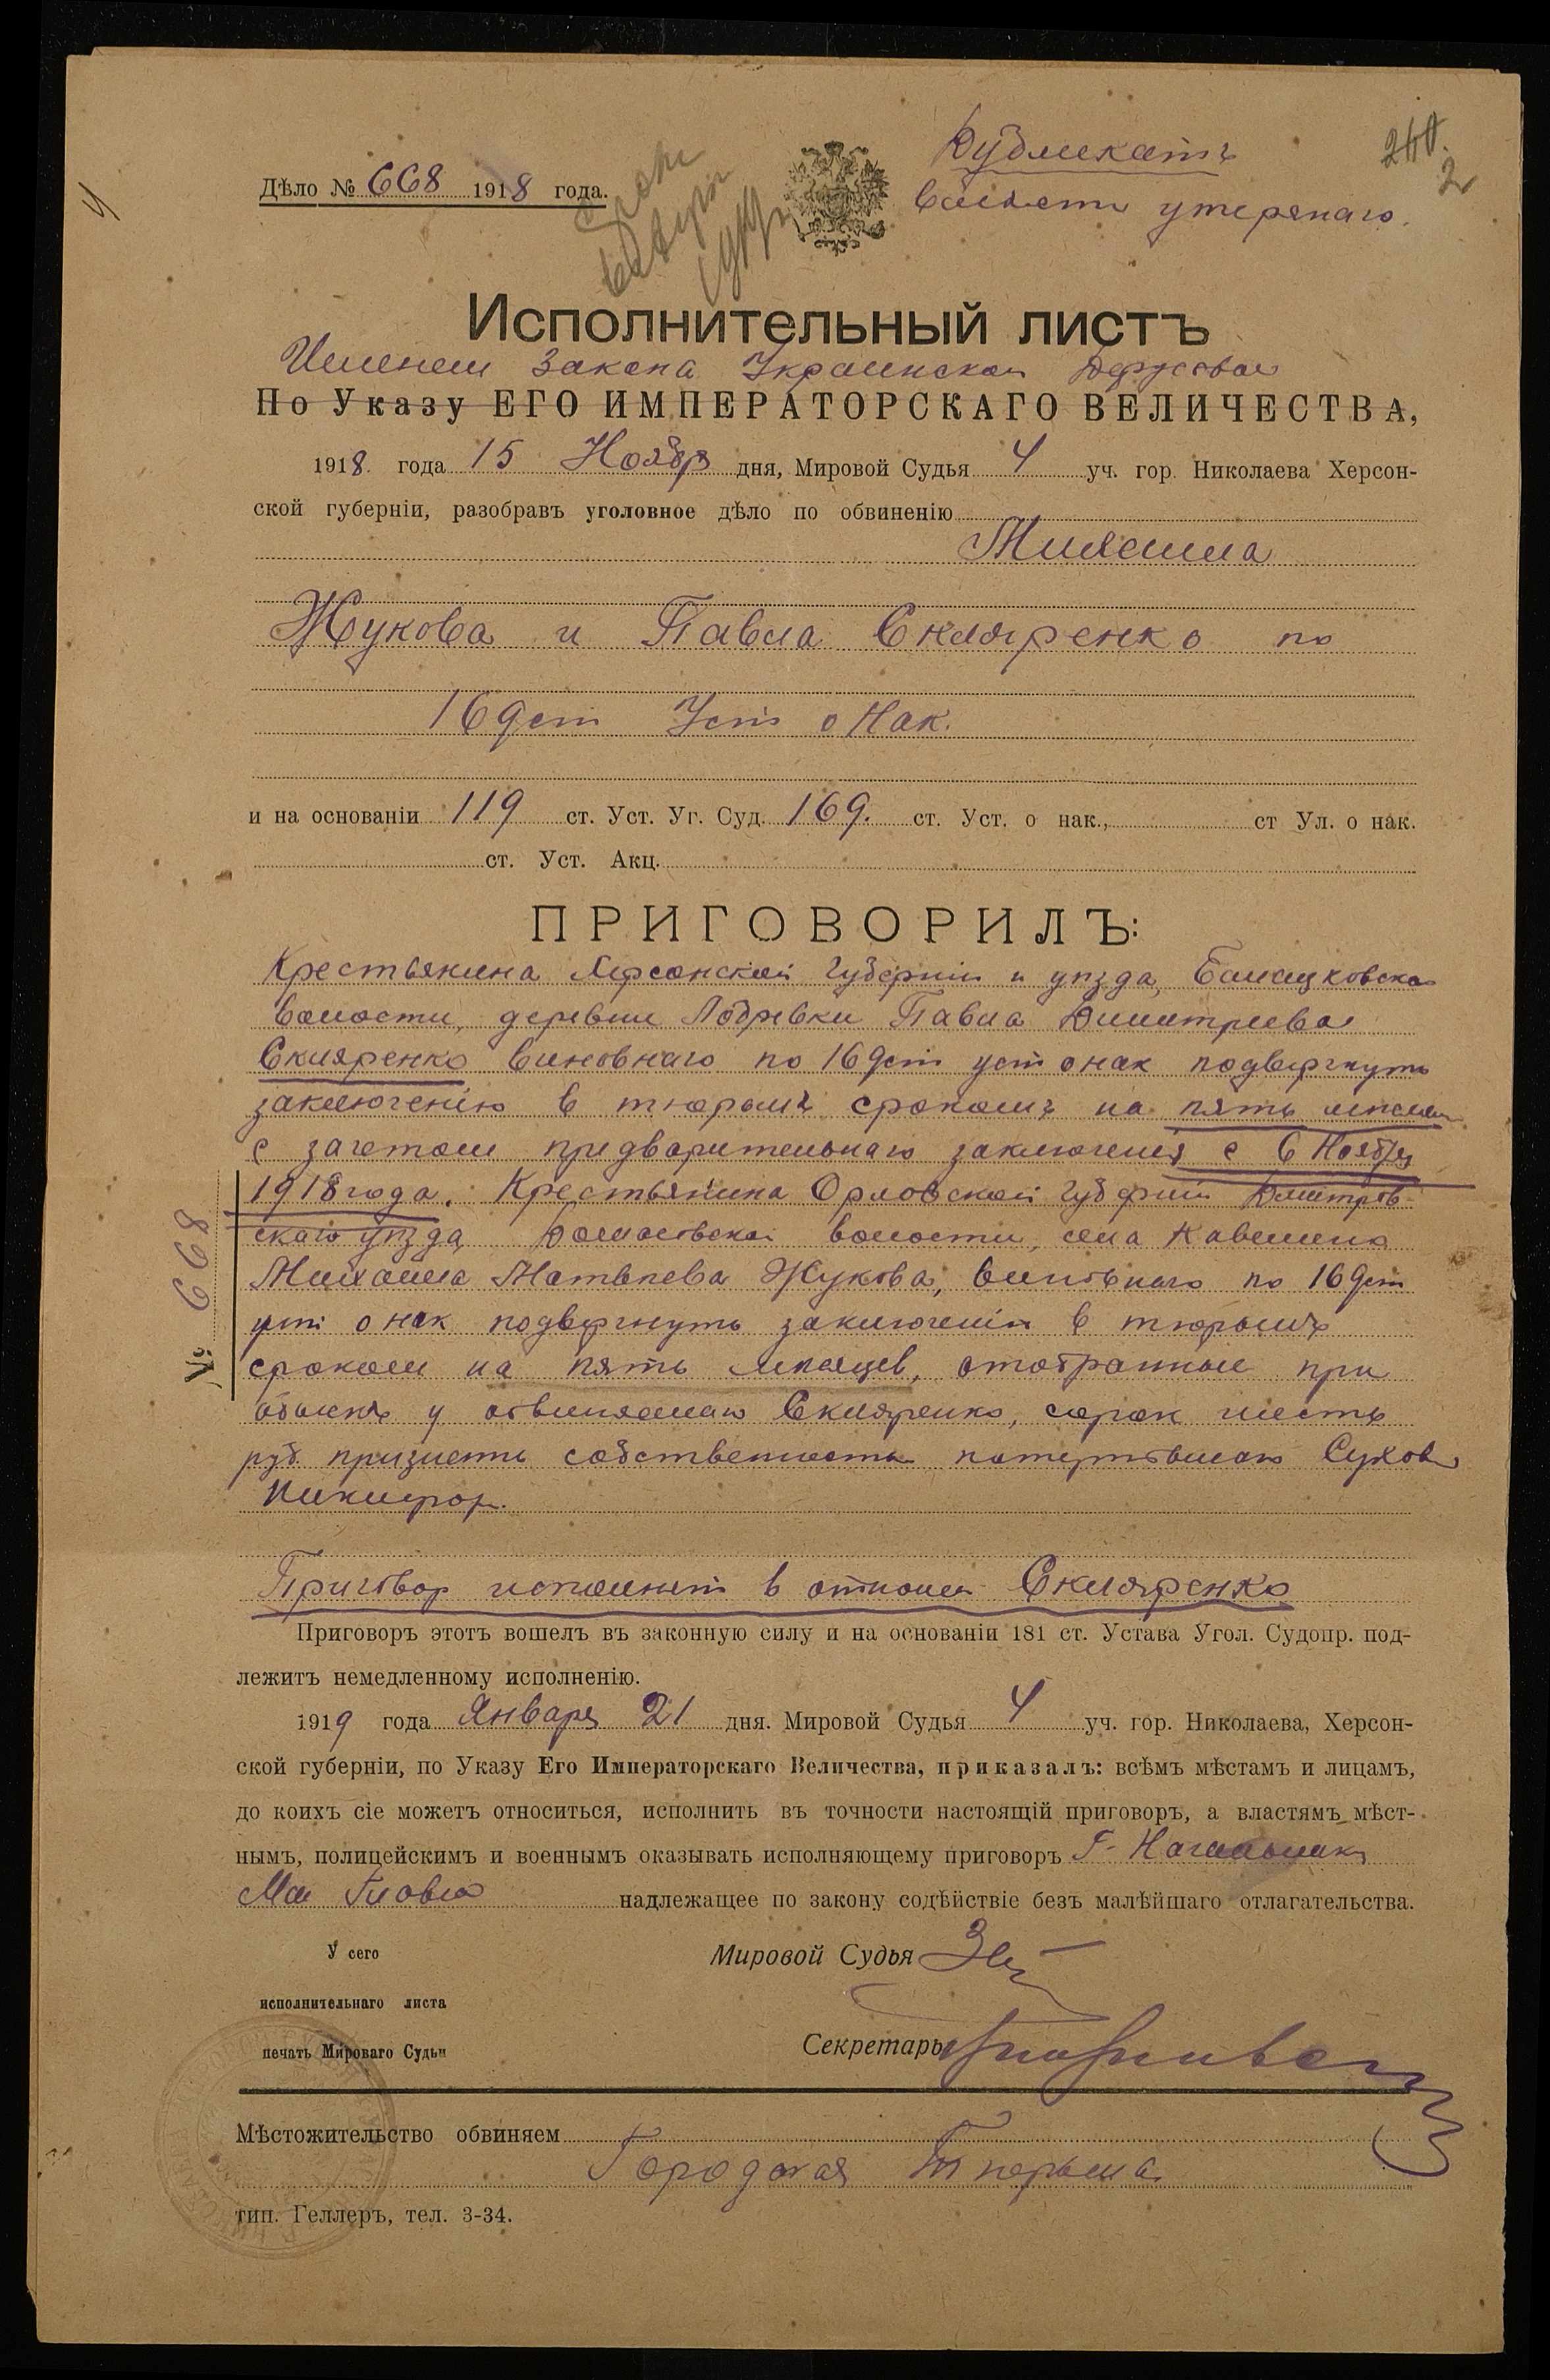 Дубликатъ
240.
2
Дѣло № 668 1918 года.
взамен утерянаго.
Исполнительный листъ
Именем Закона Украинской Державы
По Указу ЕГО ИМПЕРАТОРСКАГО ВЕЛИЧЕСТВА,
1918 года 15 Ноября дня, Мировой Судья 4 уч. гор. Николаева Херсон-
ской губерніи, разобравъ уголовное дѣло по обвиненію
Михаила
Жукова и Павла Скляренко по
169 ст Уст о Нак.
и на основаніи 119 ст. Уст. Уг. Суд. 169. ст. Уст. о нак., ст Ул. о нак.
ст. Уст. Акц.
ПРИГОВОРИЛЪ:
Крестьянина Херсонской Губерніи и уѣзда,
волости, деревни Павла Дмитриева
Скляренко виновнаго по 169 ст уст о нак подвергнуть
заключенію в тюрьмѣ срокомъ на пять месяцев
с зачетом предварительнаго заключения с 6 Ноября
1918 года. Крестьянина Орловской Губерніи Дмитров-
скаго уѣзда волости, села
Михаила Матвѣева Жукова, виновнаго по 169 ст
уст о нак подвергнуть заключенію в тюрьмѣ
сроком на пять мѣсяцев, отобранные при
обыскѣ у обвиняемаго Скляренко, сорок шесть
руб. признать собственностью потерпѣвшаго Сухова
Никифора.
Приговор исполнит в отношен Скляренко
№ 668
Приговоръ этотъ вошелъ въ законную силу и на основаніи 181 ст. Устава Угол. Судопр. под-
лежитъ немедленному исполненію.
1919 года Января 21 дня. Мировой Судья 4 уч. гор. Николаева, Херсон-
ской губерніи, по Указу Его Императорскаго Величества, приказалъ: всѣмъ мѣстамъ и лицамъ,
до коихъ сіе можетъ относиться, исполнить въ точности настоящій приговоръ, а властямъ мѣст-
нымъ, полицейскимъ и военнымъ оказывать исполняющему приговоръ Г. Начальник
надлежащее по закону содѣйствіе безъ малѣйшаго отлагательства.
У сего
Мировой Судья
исполнительнаго листа
печать Мироваго Судьи
Секретарь
Мѣстожительство обвиняем
Городская Тюрьма
тип. Геллеръ, тел. 3-34.